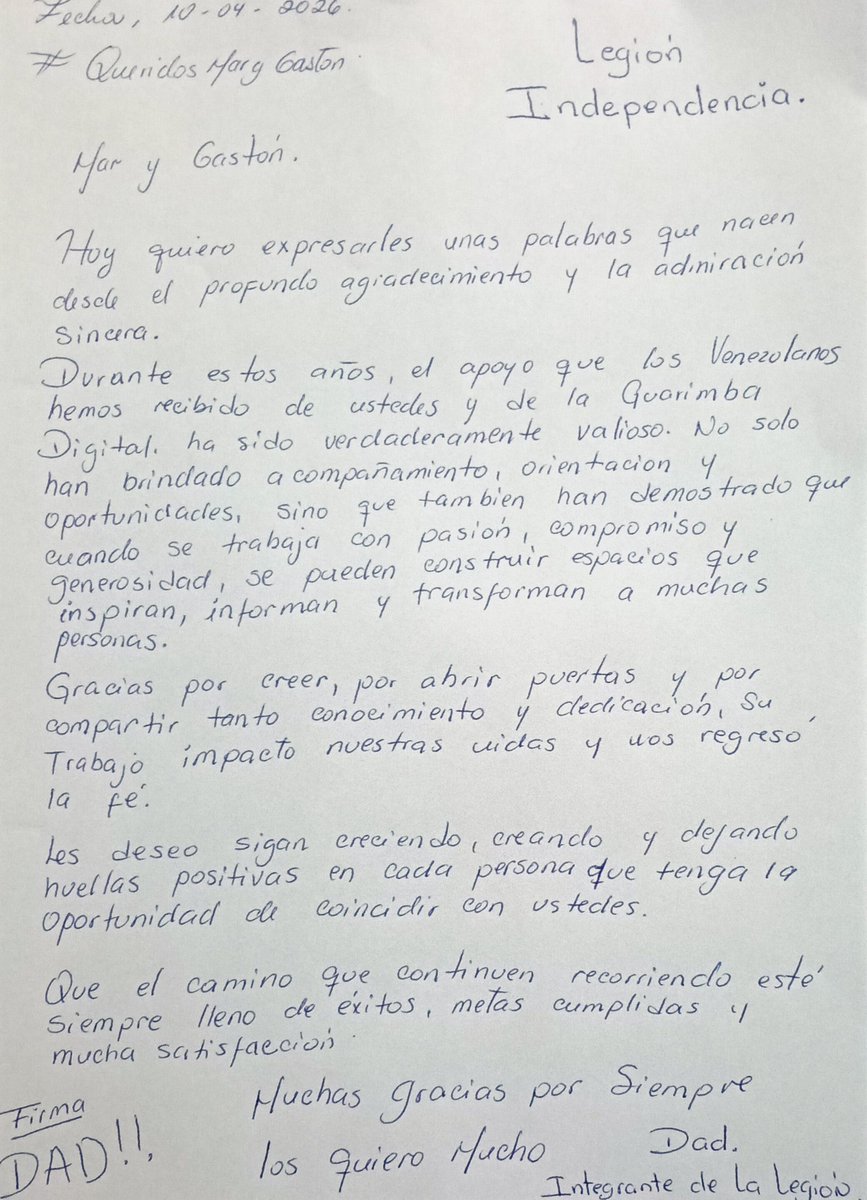 Fecha, 10-04-2026.
# Queridos Mar y Gaston.
Legión
Independencia.
Mar y Gastón.
Hoy quiero expresarles unas palabras que nacen
desde el profundo agradecimiento y la admiración
sincera.
Durante estos años, el apoyo que los Venezolanos
hemos recibido de ustedes y de la Guarimba
Digital. ha sido verdaderamente valioso. No solo
han brindado acompañamiento, orientacion y
oportunidades, sino que tambien han demostrado que
cuando se trabaja con pasión, compromiso y
generosidad, se pueden construir espacios que
inspiran, informan y transforman a muchas
personas.
Gracias por creer, por abrir puertas y por
compartir tanto conocimiento y dedicación, Su
Trabajo impacto nuestras vidas y nos regresó
la fé.
Les deseo sigan creciendo, creando y dejando
huellas positivas en cada persona que tenga la
oportunidad de coincidir con ustedes.
Que el camino que continuen recorriendo esté
siempre lleno de éxitos, metas cumplidas y
mucha satisfacción.
Muchas gracias por Siempre
los quiero Mucho Dad.
Integrante de La Legión
Firma
DAD!!.